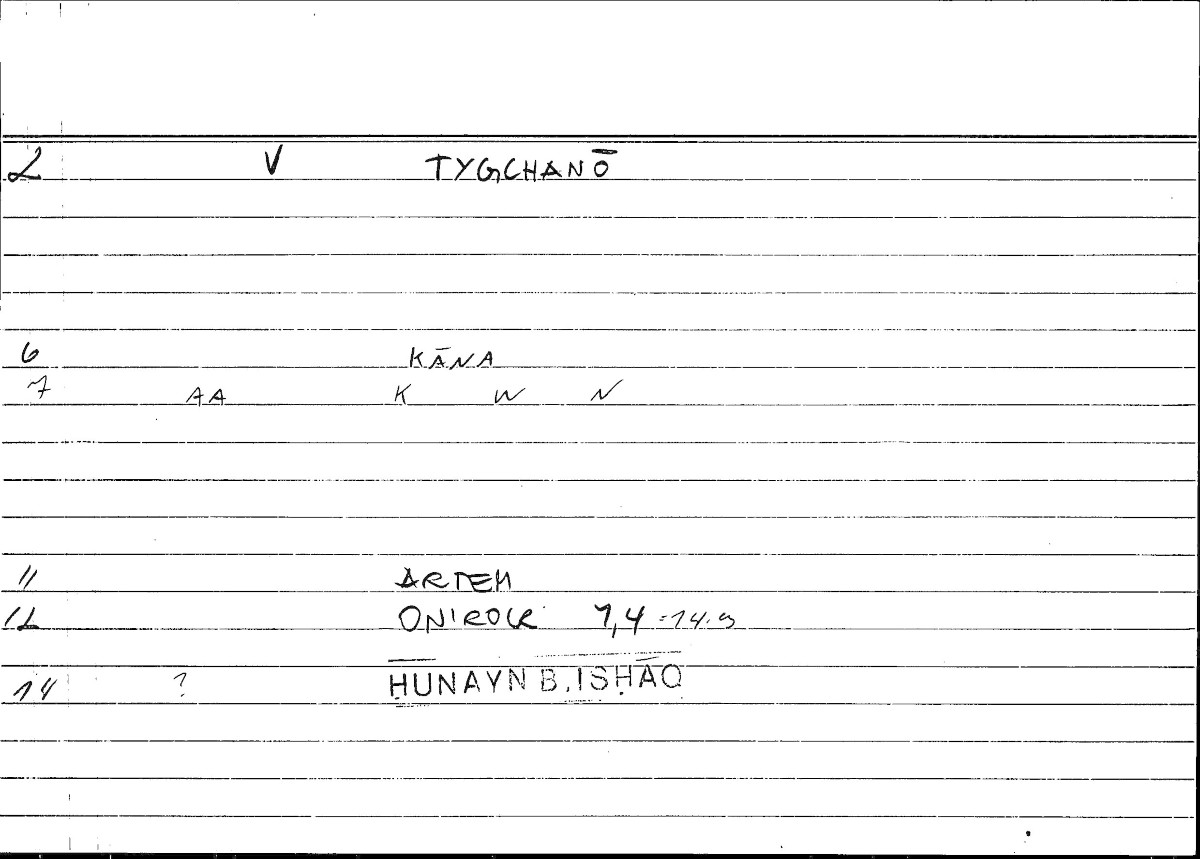 2 V TYGCHANŌ
6 KĀNA
7 AA K W N
11 ARTEM
12 ONIROCR 1,4 = 14.9
14 ? ḤUNAYN B. ISḤĀQ